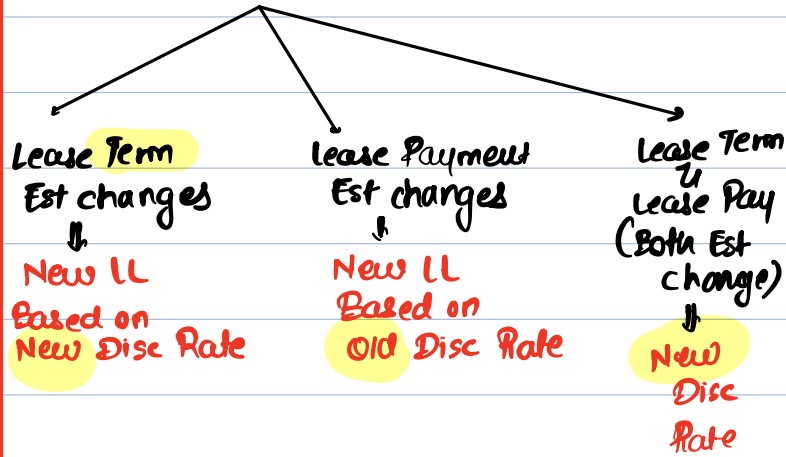 Lease Term
Est changes
⇓
New LL
Based on
New Disc Rate
lease Payment
Est changes
⇓
New LL
Based on
Old Disc Rate
Lease Term
&
Lease Pay
(Both Est
change)
⇓
New
Disc
Rate